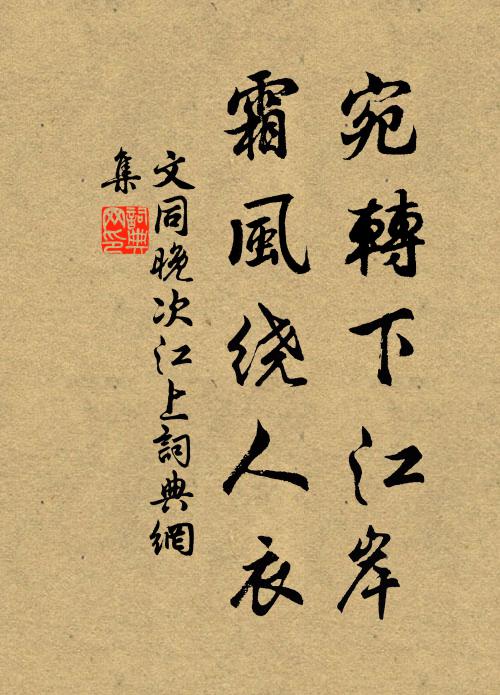 宛轉下江岸
霜風绕人衣
文同晚次江上詞典網
集
詞典网印